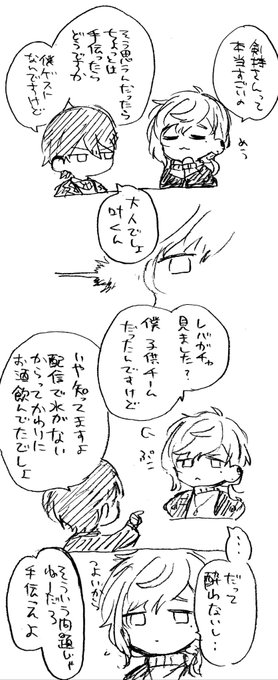 剣持さんって
本当すごいよ
めっ
そう思うんだったら
ちょっとは
手伝ったら
どうですか
僕ゲスト
なんですけど
大人でしょ
叶くん
レバガチャ
見ました?
僕子供チーム
だったんですけど
ぷに
いや知ってますよ
配信で水がない
からってかわりに
お酒飲んでたでしょ
…
だって
酔わないし..
つよいから
そういう問題じゃ
ねーだろ
手伝えよ